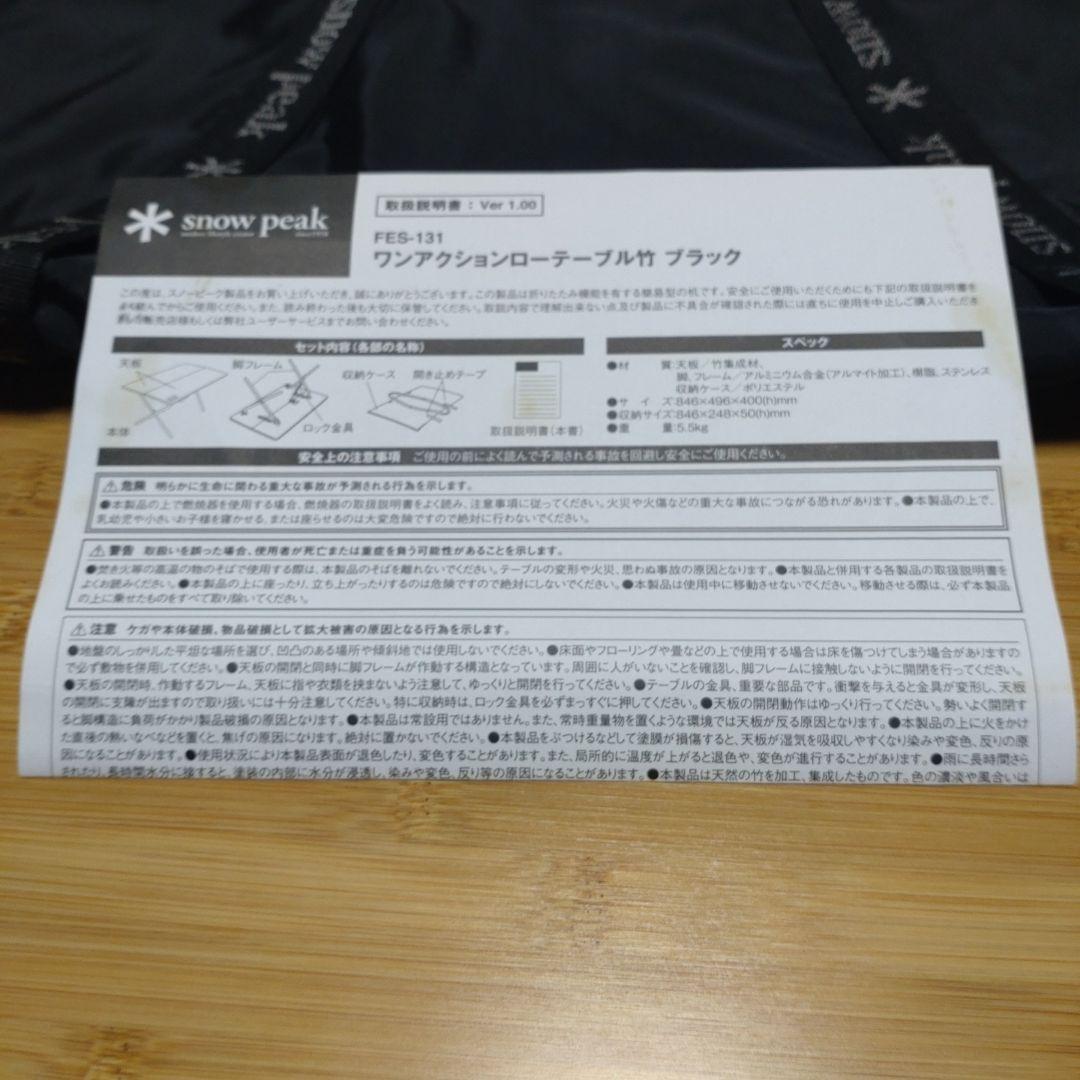 snow peak
snow
peak
snow peak
取扱説明書：Ver 1.00
FES-131
ワンアクションローテーブル竹 ブラック
この度は、スノーピーク製品をお買い上げいただき、誠にありがとうございます。この製品は折りたたみ機能を有する簡易型の机です。安全にご使用いただくためにも下記の取扱説明書を
よく読んでからご使用ください。また、読み終わった後も大切に保管してください。取説内容で理解出来ない点及び製品に不具合が確認された際には直ちに使用を中止しご購入いただき
ました販売店様もしくは弊社ユーザーサービスまでお問い合わせください。
セット内容（各部の名称）
天板
脚フレーム
収納ケース
開き止めテープ
本体
ロック金具
取扱説明書（本書）
スペック
●材　　質:天板／竹集成材、
脚、フレーム／アルミニウム合金（アルマイト加工）、樹脂、ステンレス
収納ケース／ポリエステル
●サ イ ズ:846×496×400(h)mm
●収納サイズ:846×248×50(h)mm
●重　　量:5.5kg
安全上の注意事項　ご使用の前によく読んで予測される事故を回避し安全にご使用ください。
⚠危険　明らかに生命に関わる重大な事故が予測される行為を示します。
●本製品の上で燃焼器を使用する場合、燃焼器の取扱説明書をよく読み、注意事項に従ってください。火災や火傷などの重大な事故につながる恐れがあります。●本製品の上で、
乳幼児や小さいお子様を寝かせる、または座らせるのは大変危険ですので絶対に行わないでください。
⚠警告　取扱いを誤った場合、使用者が死亡または重症を負う可能性があることを示します。
●焚き火等の高温の物のそばで使用する際は、本製品のそばを離れないでください。テーブルの変形や火災、思わぬ事故の原因となります。●本製品と併用する各製品の取扱説明書を
よくお読みください。●本製品の上に座ったり、立ち上がったりするのは危険ですので絶対にしないでください。●本製品は使用中に移動させないでください。移動させる際は、必ず本製品
の上に乗せたものをすべて取り除いてください。
⚠注意　ケガや本体破損、物品破損として拡大被害の原因となる行為を示します。
●地盤のしっかりした平坦な場所を選び、凹凸のある場所や傾斜地では使用しないでください。●床面やフローリングや畳などの上で使用する場合は床を傷つけてしまう場合がありますの
で必ず敷物を併用してください。●天板の開閉と同時に脚フレームが作動する構造となっています。周囲に人がいないことを確認し、脚フレームに接触しないように開閉を行ってください。
●天板の開閉時、作動するフレーム、天板に指や衣類を挟まないよう注意して、ゆっくりと開閉を行ってください。●テーブルの金具、重要な部品です。衝撃を与えると金具が変形し、天板
の開閉に支障が出ますので取り扱いには十分注意してください。特に収納時は、ロック金具を必ずまっすぐに押してください。●天板の開閉動作はゆっくり行ってください。勢いよく開閉す
ると脚構造に負荷がかかり製品破損の原因となります。●本製品は常設用ではありません。また、常時重量物を置くような環境では天板が反る原因となります。●本製品の上に火をかけ
た直後の熱いなべなどを置くと、焦げの原因になります。絶対に置かないでください。●本製品をぶつけるなどして塗膜が損傷すると、天板が湿気を吸収しやすくなり染みや変色、反りの原
因になることがあります。●使用状況により本製品表面が退色したり、変色することがあります。また、局所的に温度が上がると退色や、変色が進行することがあります。●雨に長時間さら
されたり、長時間水分に接すると、塗装の内部に水分が浸透し、染みや変色、反り等の原因になることがあります。●本製品は天然の竹を加工、集成したものです。色の濃淡や風合いは